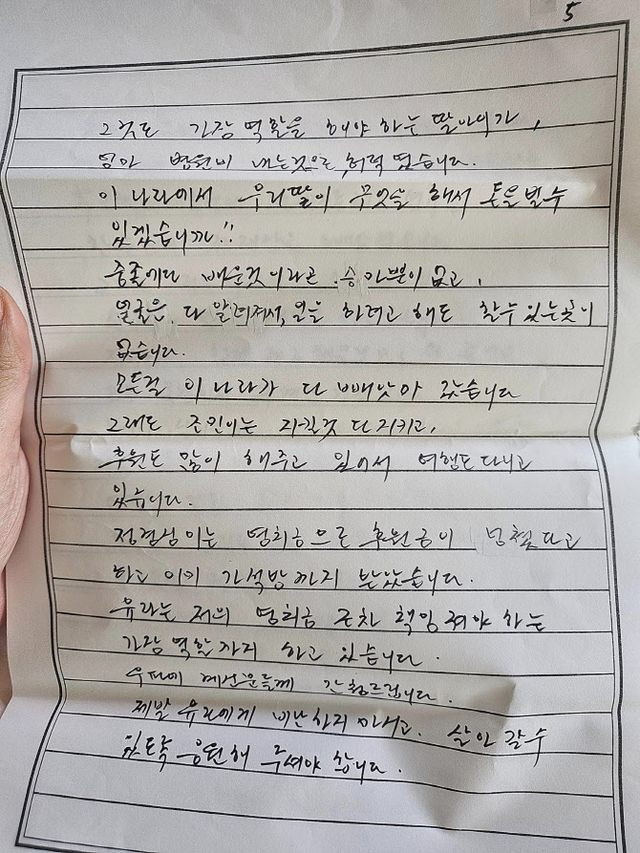 5
그것도 가장역활을 해야 하는 딸아이가,
엄마 병원비 내는것으로, 허덕 였습니다.
이 나라에서 우리딸이 무엇을 해서 돈을 벌수
있겠습니까!!
중졸에다 배운것이라곤 승마뿐이 없고,
얼굴은 다 알려져서, 일을 하려고 해도 할수 있는곳이
없습니다.
모든걸 이 나라가 다 빼앗아 갔습니다
그래도 조민이는 지킬것 다 지키고,
후원도 많이 해주고 있어서 여행도 다니고
있습니다.
정경심이는 영치금으로 후원금이 넘쳤다고
하고 이미 가석방까지 받았습니다.
유라는 저의 영치금 조차 책임져야 하는
가장 역할까지 하고 있습니다.
우파에 계신분들께 간청드립니다.
제발 유라에게 비난하지 마시고. 살아 갈수
있도록 응원해 주셔야 합니다.